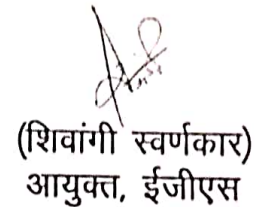 (शिवांगी स्वर्णकार)
आयुक्त, ईजीएस